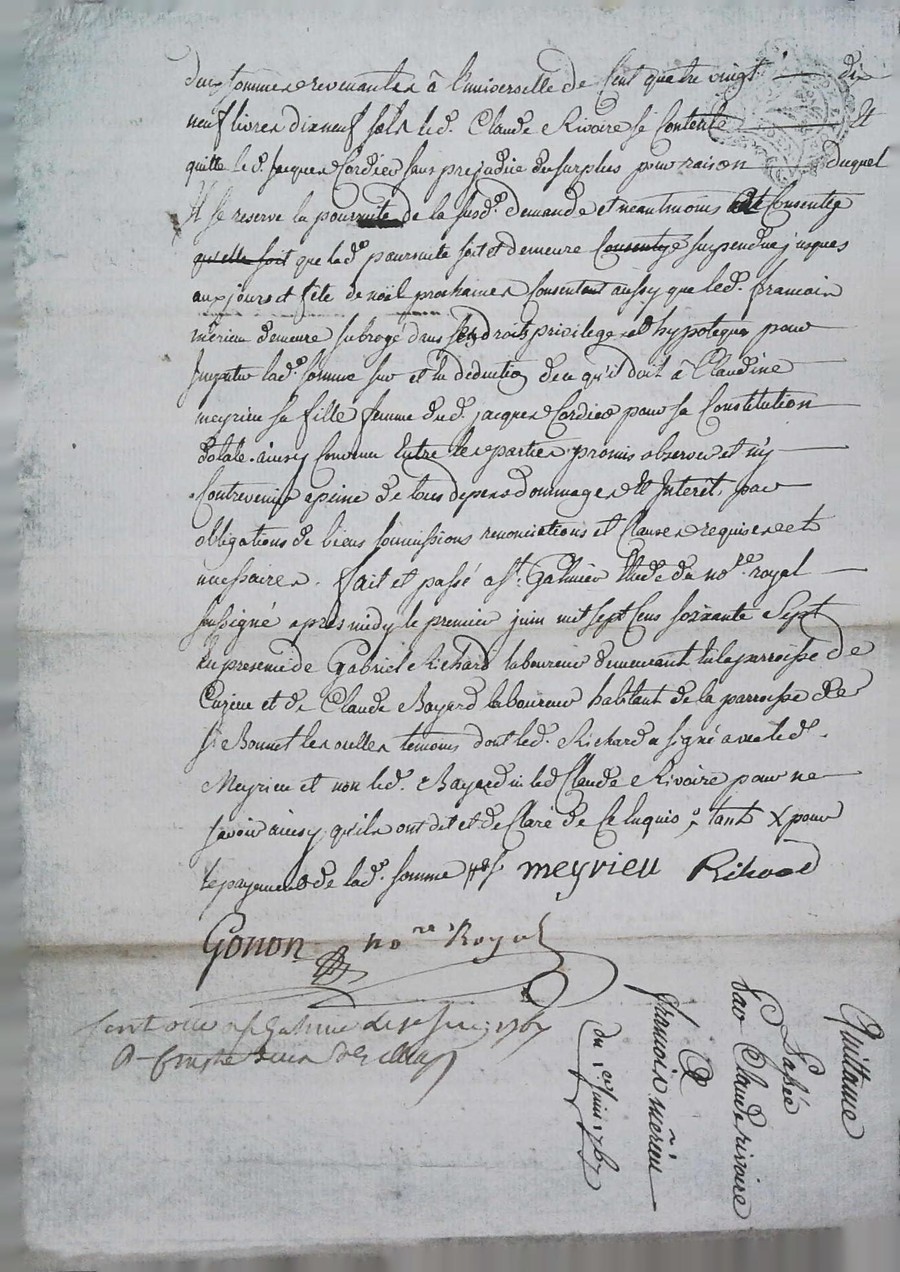 sommes revenantes à l'universelle de Cent quatre vingt dix
neuf livres dixneuf sols led. Claude Rivoire se Contente Et
quitte led. Jacques Cordier sans prejudice du surplus pour raison duquel
Il se reserve la poursuite de la susd. demande et neantmoins Consent que
qu'elle soit que lad. poursuite soit et demeure suspendue jusques
aux jours et fête de noël prochaines Consentant aussy que led. francois
mérieu demeure subrogé dans ses droits privilege et hypoteques pour
Imputer lad. somme sur et en deduction de ce qu'il doit à Claudine
meyrieu sa fille femme dud. jacques Cordier pour sa Constitution
dotale. ainsy Convenu Entre les parties promis observer et n'y
Contrevenir a peine de tous depens dommages et Interêt, par
obligations de biens soumissions renonciations et Clauses requises et
necessaires. fait et passé a St. Galmier Etude du nore. royal
soussigné après midy le premier juin mil sept cens soixante Sept
En presence de Gabriel Richard laboureur demeurant en la parroisse de
Cuzieu et de Claude Bayard laboureur habitant de la parroisse de
St Bonnet les oulles temoins dont led. Richard a signé avec led.
Meyrieu et non led. Bayard ni led Claude Rivoire pour ne
savoir ainsy qu'ils ont dit et declaré de Ce Enquis, tant X pour
le payement de lad. somme meyrieu Richard
Gonon nore Royal
Controllé a St Galmier le juin 1767
Quittance
Passée
Par Claude rivoire
A
francois mérieu
du 1er juin 1767